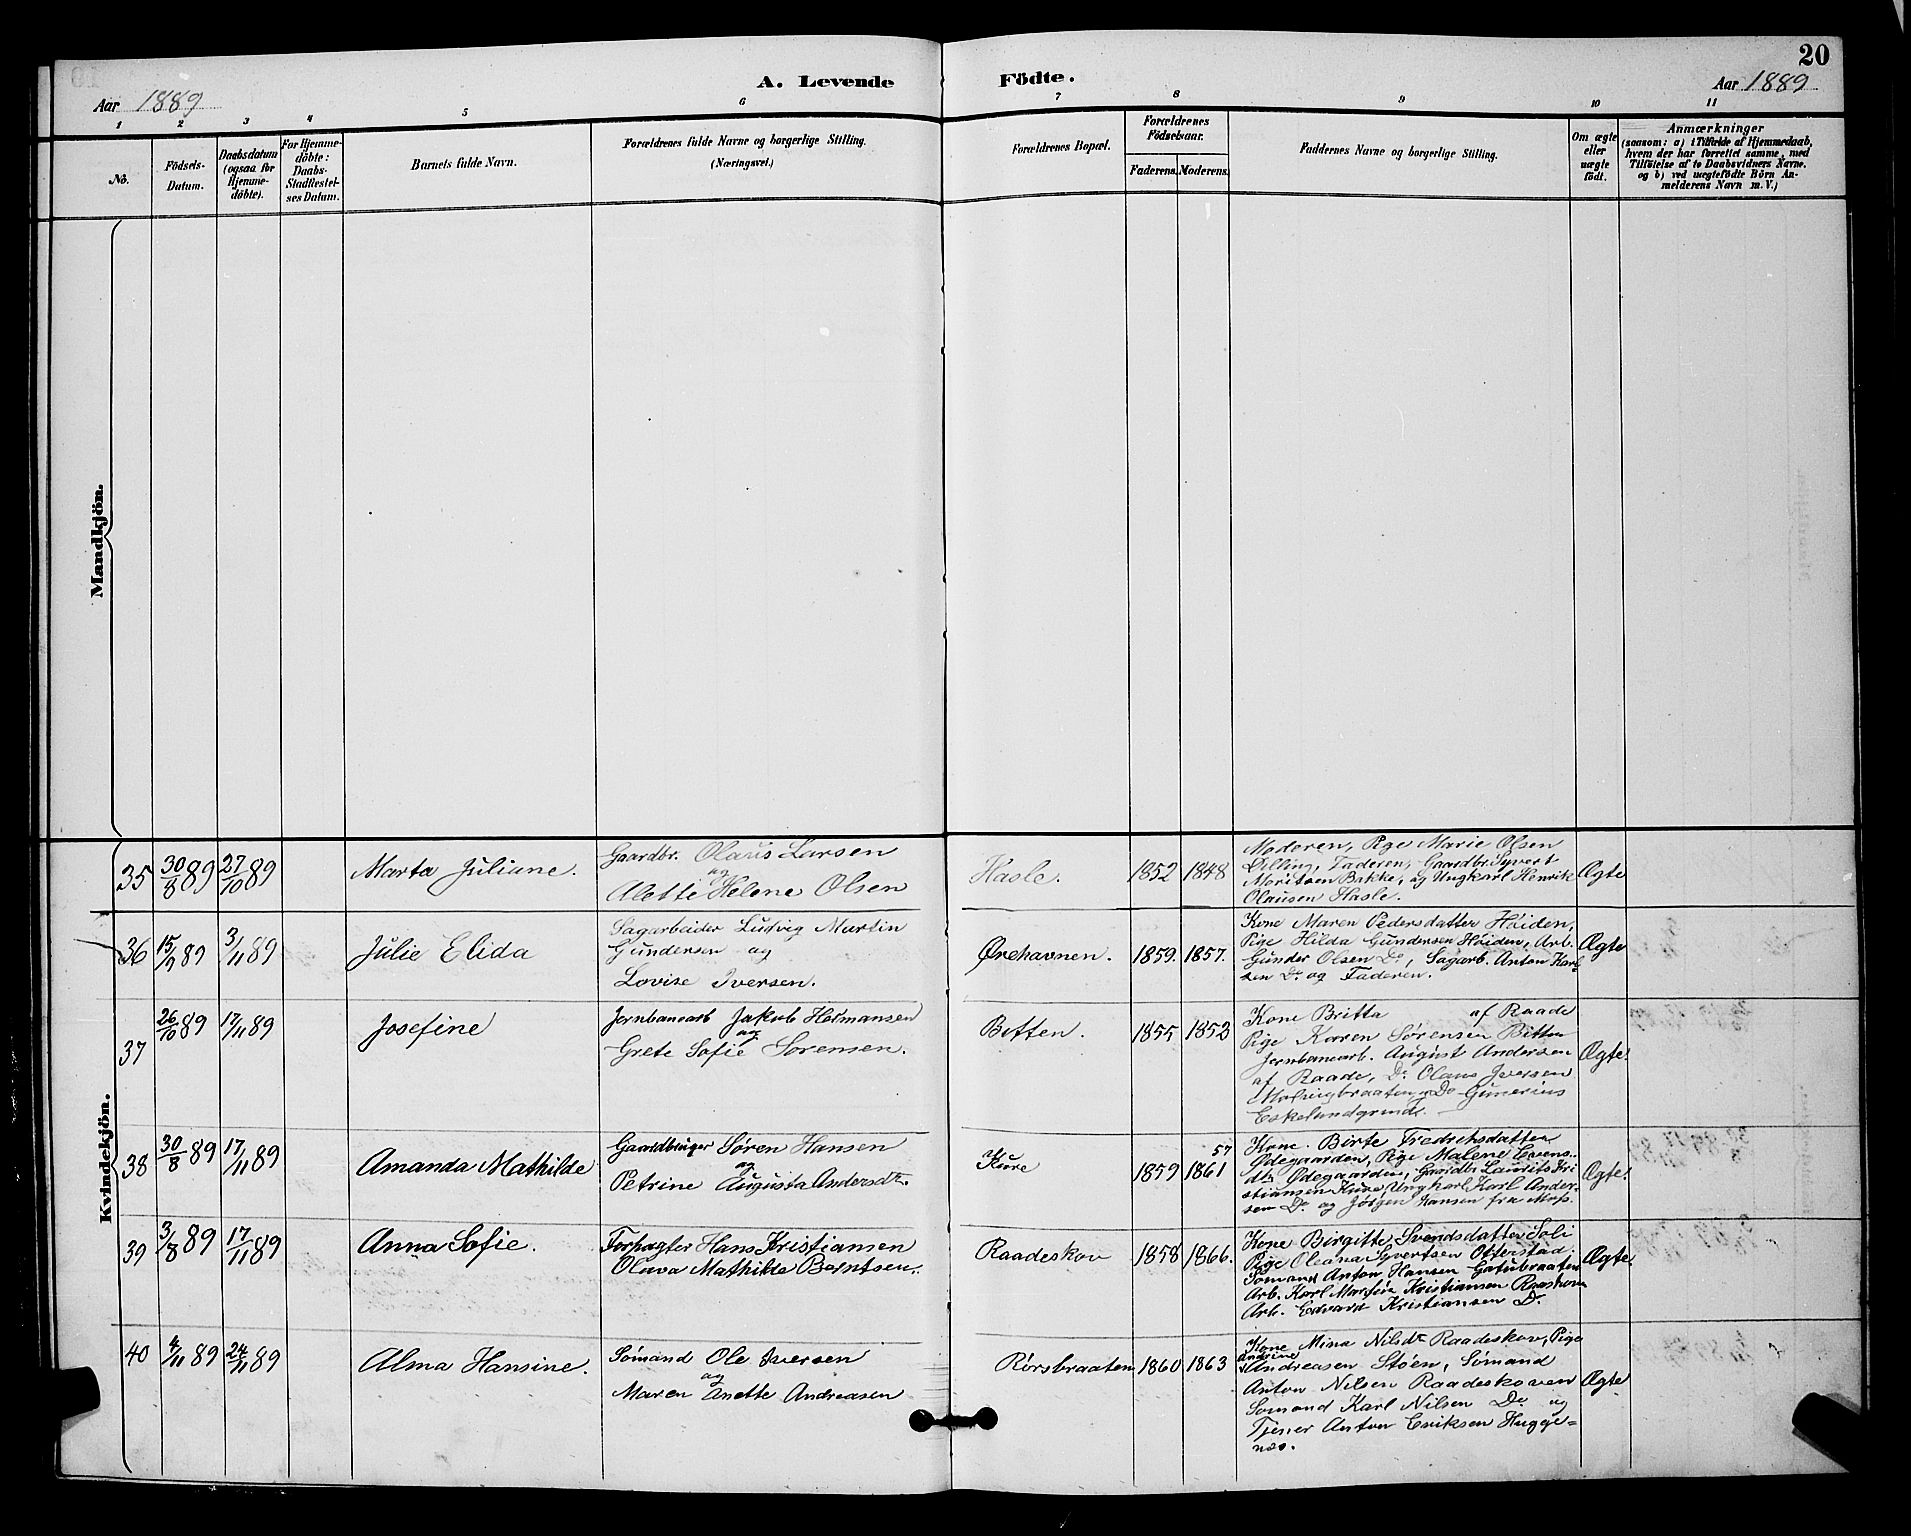 20
A. Levende Födte.
Aar 1889
Aar 1889
1 2 3 4 5 6 7 8 9 10 11
No.
Födsels-
Datum.
Daabsdatum
(ogsaa for
Hjemme-
döbte).
For Hjemme-
döbte:
Daabs-
Stadfæstel-
ses Datum.
Barnets fulde Navn.
Forældrenes fulde Navne og borgerlige Stilling.
(Næringsvei.)
Forældrenes Bopæl.
Forældrenes
Födselsaar.
Faderens. Moderens.
Faddernes Navne og borgerlige Stilling.
Om ægte
eller
uægte
födt.
Anmærkninger
(saasom: a) i Tilfælde af Hjemmedaab,
hvem der har forrettet samme, med
Tilföielse af to Daabsvidners Navne.
og b) ved uægtefödte Börn An-
melderens Navn m. V.)
Mandkjön.
Kvindekjön.
35 30/8 89 27/10 89 Marta Juliane.
Gaardbr. Olaus Larsen
og
Alette Helene Olsen
Hasle. 1852 1848
Moderen, Pige Marie Olsen
Dilling, Faderen, Gaardbr. Syvert
Moritsen Bakke, og Ungkarl Henrik
Olausen Hasle.
Ægte
36 15/9 89 3/11 89 Julie Elida
Sagarbeider Ludvig Martin
Gundersen og
Lovise Iversen.
Ørehavnen. 1859. 1857.
Kone Maren Pedersdatter Høiden,
Pige Hilda Gundersen Høiden, Arb.
Gunder Olsen Do, Sagarb. Anton Karl-
sen Do og Faderen.
Ægte
37 26/10 89 17/11 89 Josefine
Jernbanearb Jakob Hermansen
og
Grete Sofie Sørensen.
Botten. 1855 1853
Kone Britta af Raade
Pige Karen Sørensen Bitten
Jernbanearb. August Andersen
af Raade, Do Olaus Iversen
Do Gunerius
Eskelundgrind.
Ægte.
38 30/8 89 17/11 89 Amanda Mathilde
Gaardbruger Søren Hansen
og
Petrine Augusta Andersdtr.
Kure 1859 1861 57
Kone Birte Fredriksdatter
Ødegaarden, Pige Malene
dtr Ødegaarden, Gaardbr Laurits Kri
stiansen Kure, Ungkarl Karl Ander-
sen Do og Jørgen Hansen fra Moss.
Ægte.
39 3/8 89 17/11 89 Anna Sofie.
Forpagter Hans Kristiansen
Olava Mathilde Berntsen.
Raadeskov 1858 1866.
Kone Birgitte Svendsdatter Soli
Pige Oleana Syvertsen Otterstad.
Sømand Anton Hansen Gatubraaten
Arb. Karl Martin Kristiansen Raaskoven
Arb. Edvard Kristiansen Do
Ægte.
40 4/11 89 24/11 89 Alma Hansine.
Sømand Ole Iversen
og
Maren Anette Andreasen
Rørsbraaten 1860 1863
Kone Mina Nilsdtr Raadeskov, Pige
Andrine
Andreasen Støen, Sømand
Anton Nilsen Raadeskoven
Sømand Karl Nilsen Do og
Tjener Anton Eriksen Hugge-
næs.
Ægte